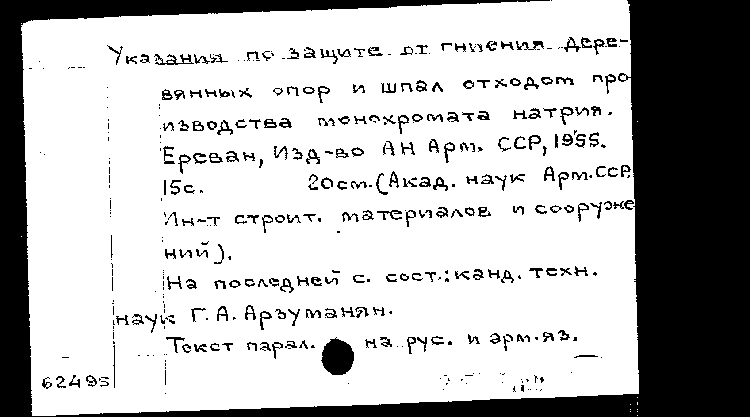 Указания по защите от гниения дере-
вянных опор и шпал отходот про
изводства монохромата натрия.
Ереван, Изд-во АН Арм. ССР, 1955.
15с. 20см. (Акад. наук Арм.ССР.
Ин-т строит. материалов и сооруже
ний).
На последней с. сост.: канд. техн.
наук Г. А. Арзуманян.
Текст парал. на рус. и арм.яз.
62495